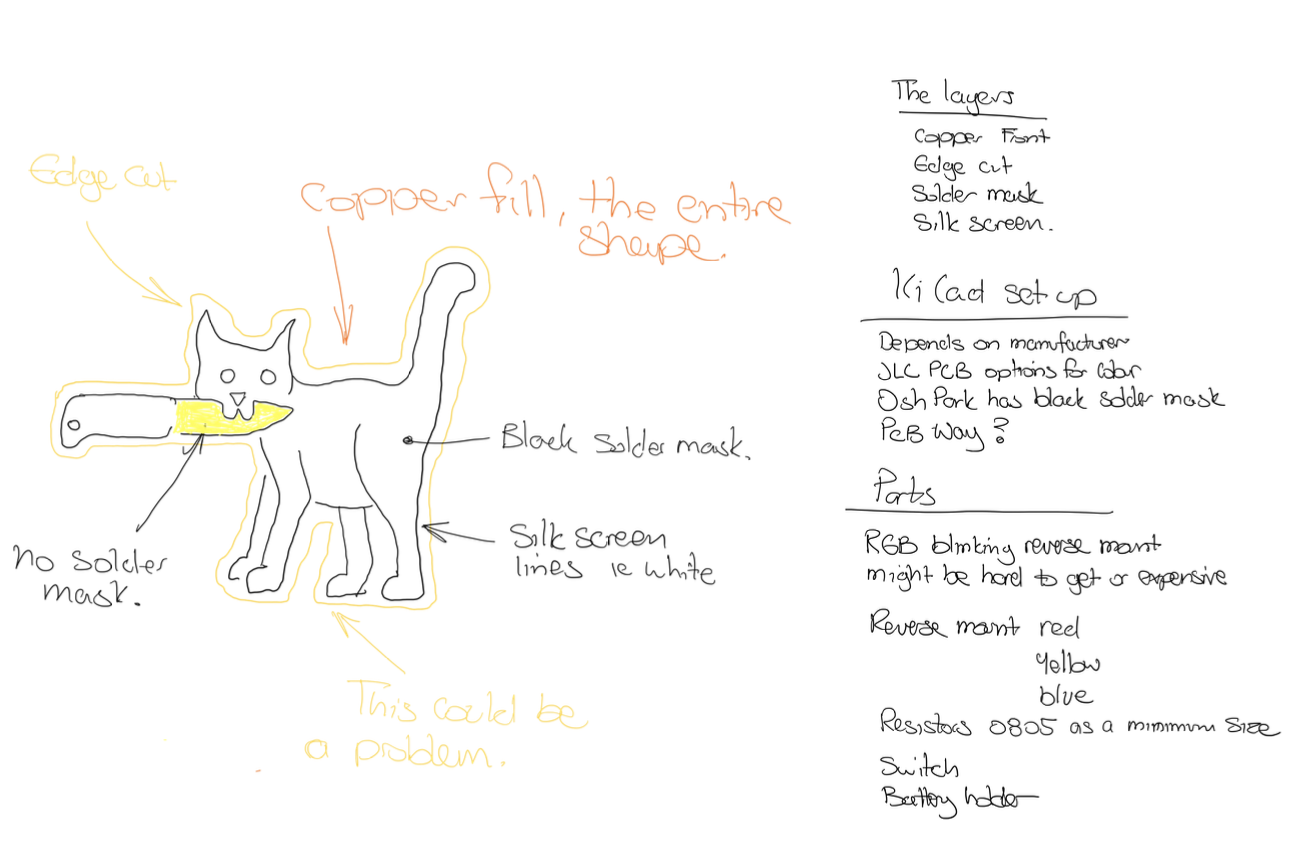 Edge cut
Copper fill, the entire
shape.
Black solder mask.
Silk screen
lines ie white
no solder
mask.
This could be
a problem.
The layers
Copper Front
Edge cut
Solder mask
Silk screen.
Ki Cad set up
Depends on manufacturer
JLC PCB options for Color
Osh Park has black solder mask
PCB Way?
Parts
RGB blinking reverse mount
might be hard to get or expensive
Reverse mount red
yellow
blue
Resistors 0805 as a minimum size
Switch
Battery holder